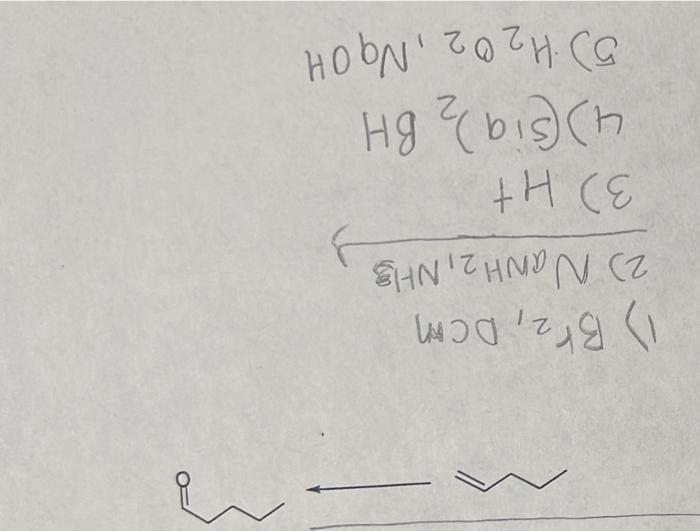 1) Br2, DCM
2) NaNH2, NH3
3) H+
4) (Sia)2 BH
5) H2O2, NaOH
O